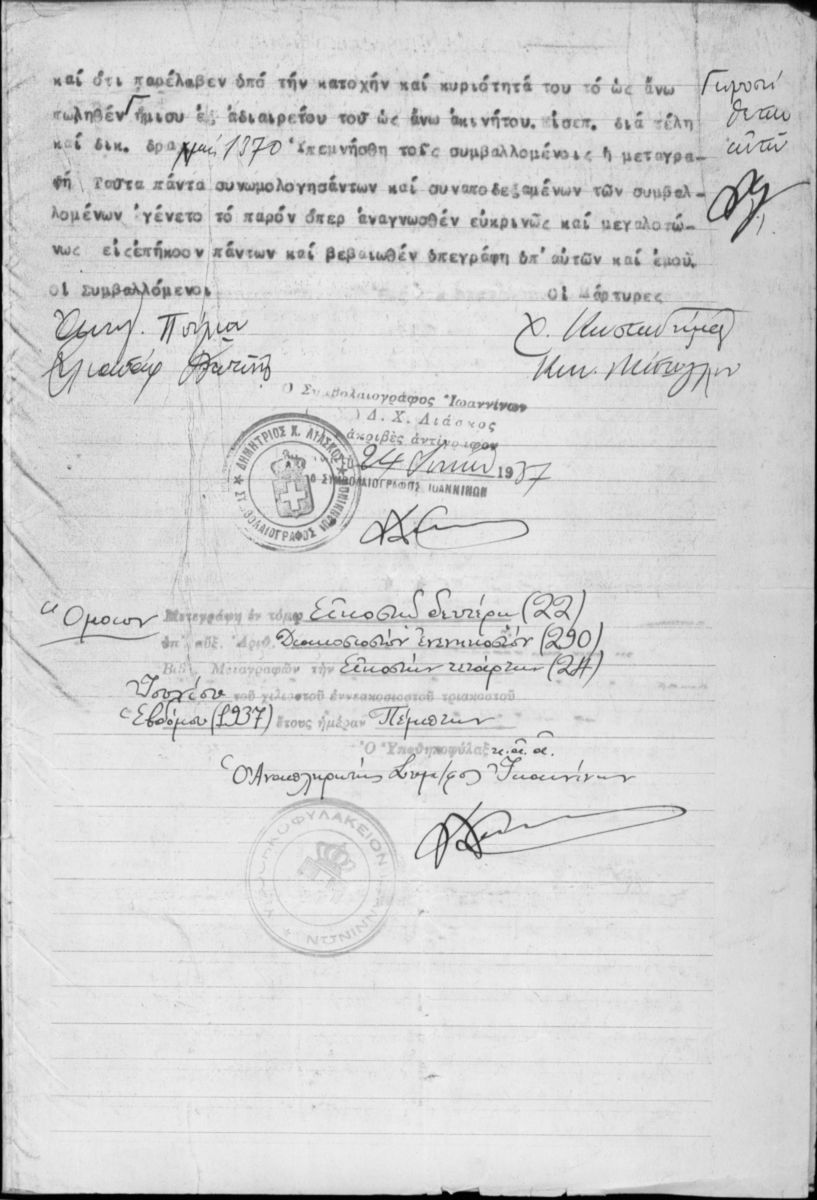 καί ότι παρέλαβεν ὑπό τήν κατοχήν καί κυριότητά του τό ὡς ἄνω
πωληθέν ἥμισυ ἐξ ἀδιαιρέτου τοῦ ὡς ἄνω ἀκινήτου. Εἰσεπ. διά τέλη
καί δικ. δραχμαί 1370 Ὑπεμνήσθη τοῖς συμβαλλομένοις ἡ μεταγρα-
φή Ταῦτα πάντα συνωμολογησάντων καί συναποδεξαμένων τῶν συμβαλ-
λομένων ἐγένετο τό παρόν ὅπερ ἀναγνωσθέν εὐκρινῶς καί μεγαλοφώ-
νως εἰς ἐπήκοον πάντων καί βεβαιωθέν ὑπεγράφη ὑπ' αὐτῶν καί ἐμοῦ.
Οἱ Συμβαλλόμενοι
Οἱ Μάρτυρες
Ὁ Συμβολαιογράφος Ἰωαννίνων
Δ. Χ. Λιάσκος
ἀκριβές ἀντίγραφον
24 1937
Ο ΣΥΜΒΟΛΑΙΟΓΡΑΦΟΣ ΙΩΑΝΝΙΝΩΝ
ΔΗΜΗΤΡΙΟΣ Χ. ΛΙΑΣΚΟΣ
ΣΥΜΒΟΛΑΙΟΓΡΑΦΟΣ ΙΩΑΝΝΙΝΩΝ
Ὅμοιον Μετεγράφη ἐν τόμῳ Εἰκοστῷ δευτέρῳ (22)
ὑπ' αὐξ. Ἀριθ. Διακοσιοστὸν ἐνενηκοστὸν (290)
Βιβλ. Μεταγραφῶν τὴν Εἰκοστὴν τετάρτην (24)
Ἰουλίου τοῦ χιλιοστοῦ ἐννεακοσιοστοῦ τριακοστοῦ
Ἑβδόμου (1937) ἔτους ἡμέραν Πέμπτην
Ὁ Ὑποθηκοφύλαξ κ.α.α.
Ὁ Ἀναπληρωτὴς Συμ/φος Ἰωαννίνων
ΥΠΟΘΗΚΟΦΥΛΑΚΕΙΟΝ ΙΩΑΝΝΙΝΩΝ